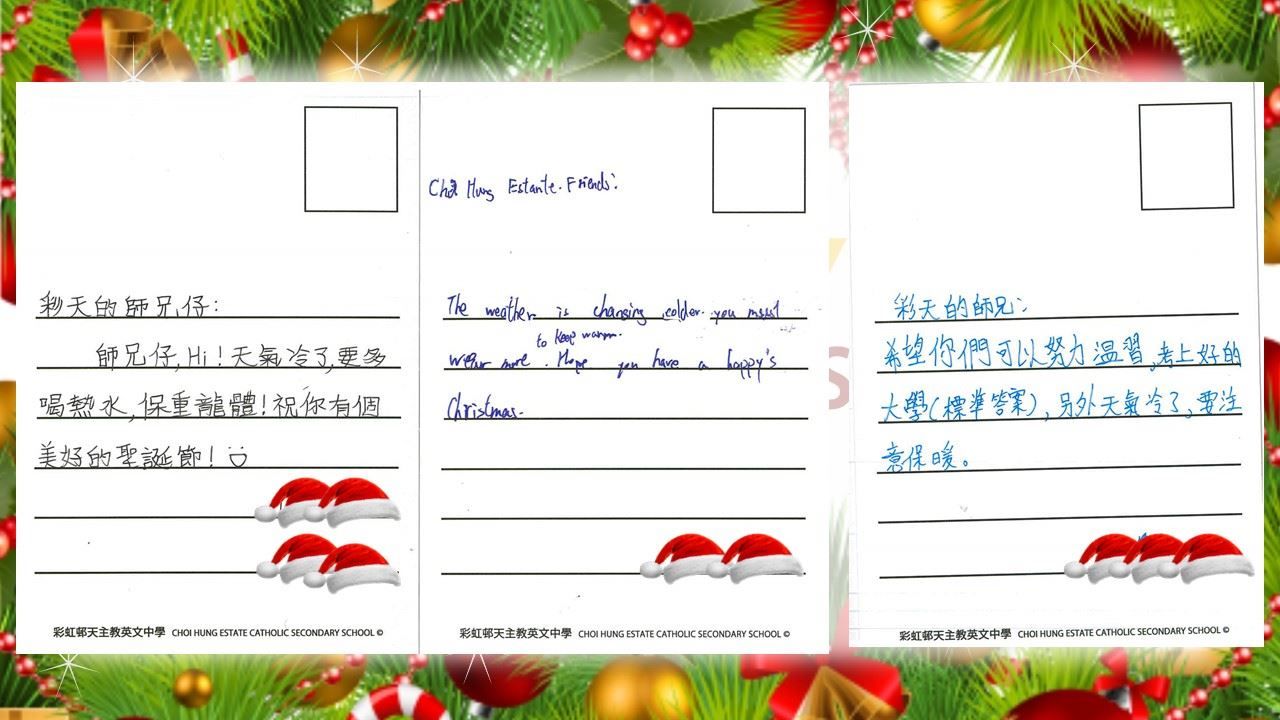 彩天的師兄仔:
師兄仔,Hi!天氣冷了,要多
喝熱水,保重龍體!祝你有個
美好的聖誕節!
彩虹邨天主教英文中學 CHOI HUNG ESTATE CATHOLIC SECONDARY SCHOOL ©
Choi Hung Estante. Friends:
The weather is changing colder. you must
to keep warm.
wear more. Hope you have a happy's
Christmas.
彩虹邨天主教英文中學 CHOI HUNG ESTATE CATHOLIC SECONDARY SCHOOL ©
彩天的師兄:
希望你們可以努力溫習,考上好的
大學(標準答案),另外天氣冷了,要注
意保暖。
彩虹邨天主教英文中學 CHOI HUNG ESTATE CATHOLIC SECONDARY SCHOOL ©